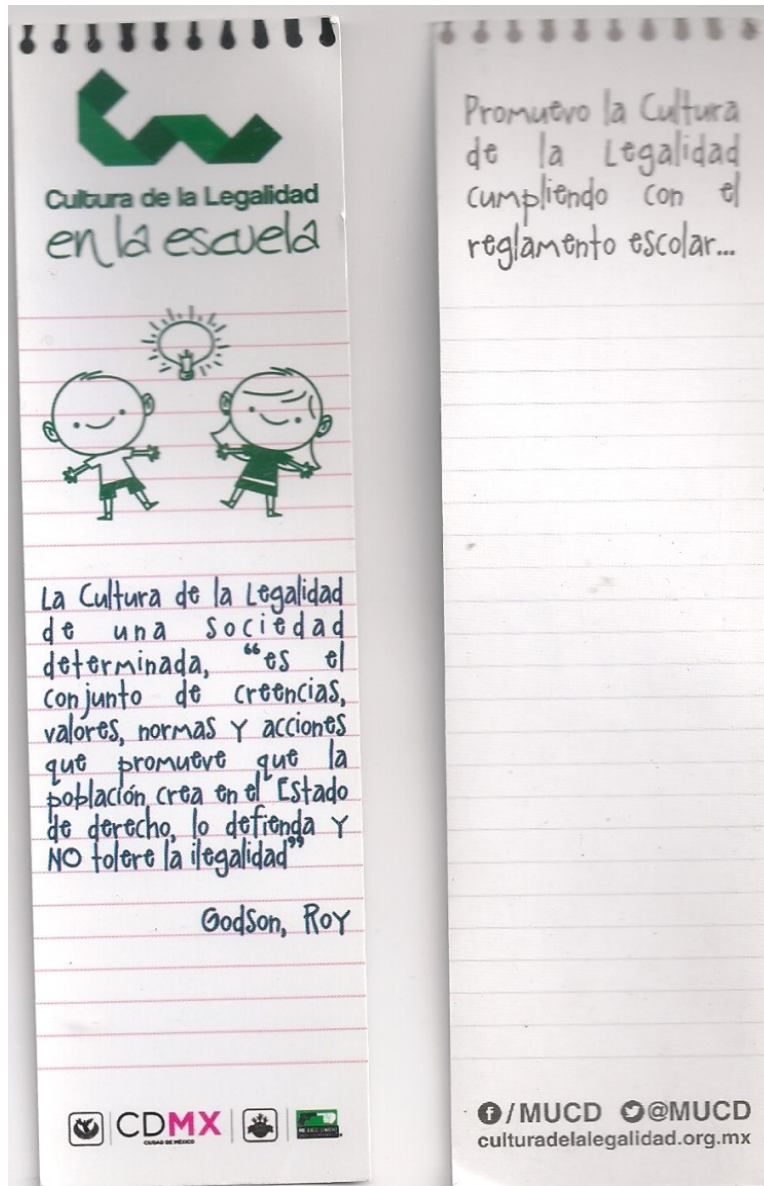 Cultura de la Legalidad
en la escuela
La Cultura de la Legalidad
de una sociedad
determinada, “es el
conjunto de creencias,
valores, normas y acciones
que promueve que la
población crea en el Estado
de derecho, lo defienda y
NO tolere la ilegalidad”
Godson, Roy
CDMX
CIUDAD DE MÉXICO
Promuevo la Cultura
de la Legalidad
cumpliendo con el
reglamento escolar...
/MUCD @MUCD
culturadelalegalidad.org.mx